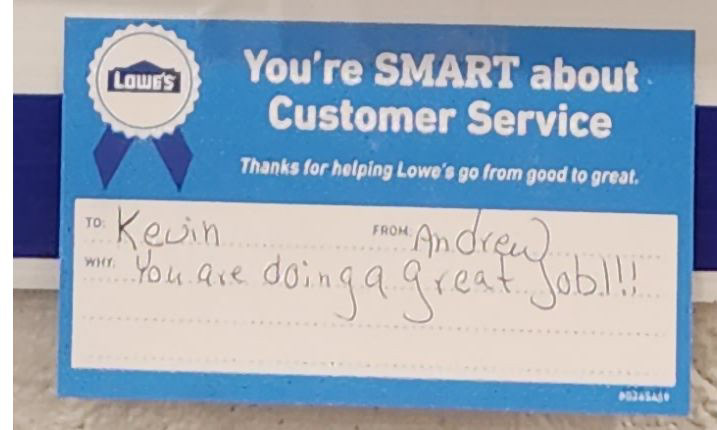 LOWE'S
You're SMART about
Customer Service
Thanks for helping Lowe's go from good to great.
TO: Kevin FROM: Andrew
WHY: You are doing a great Job!!!